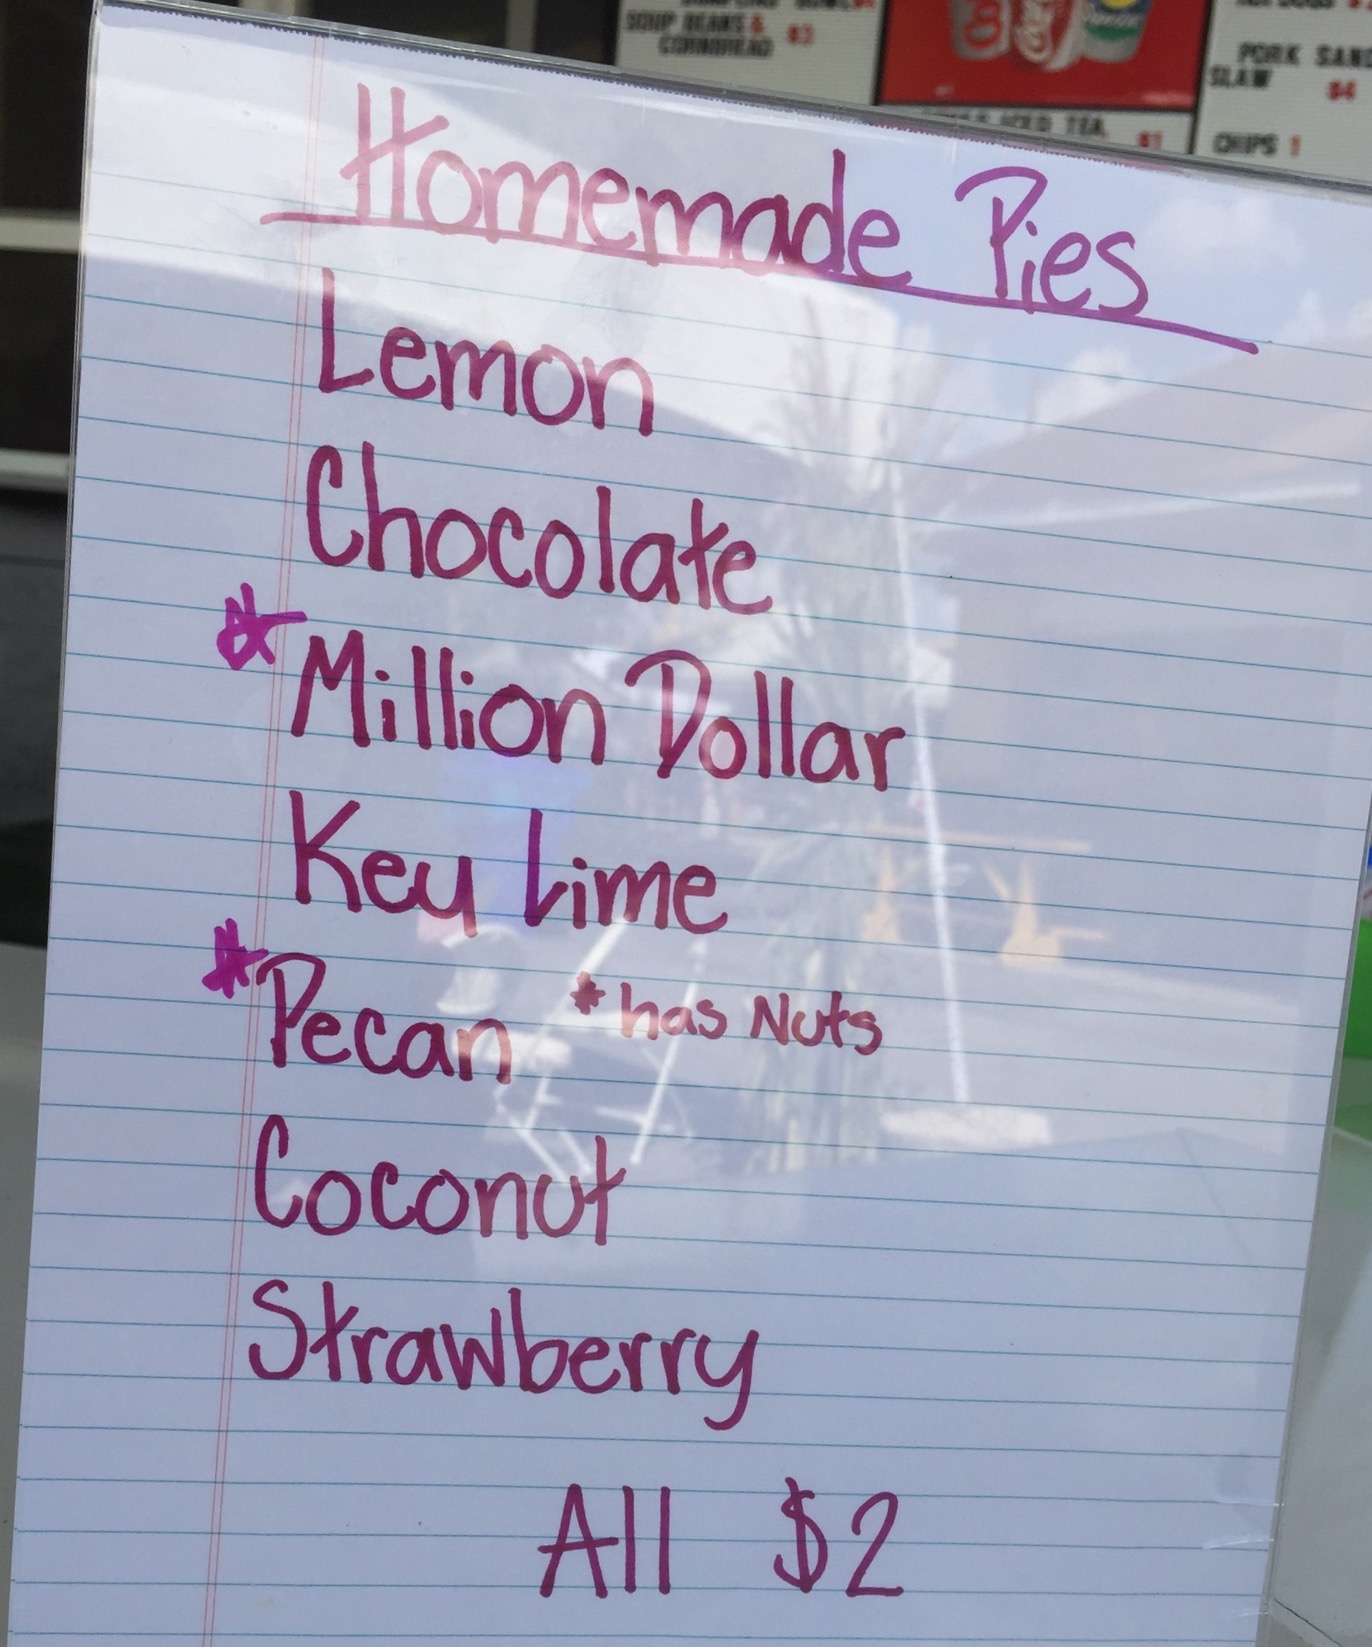 SOUP BEANS & $3
CORNBREAD
ICED TEA
$1
PORK SAN
SLAW $4
CHIPS 1
Homemade Pies
Lemon
Chocolate
* Million Dollar
Key Lime
* Pecan * has Nuts
Coconut
Strawberry
All $2